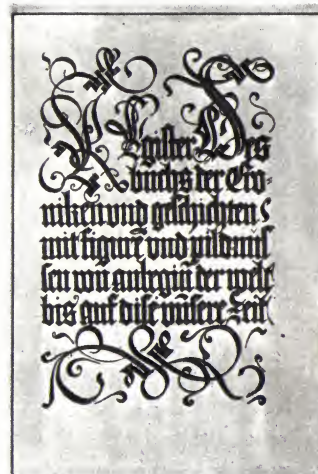 Register Des
buchs der Cro-
niken vnd geschichten
mit figurẽ vnd pildnus
sen von anbegin der welt
bis auf dise vnsere Zeit